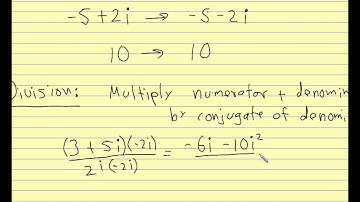 -5+2i → -5-2i
10 → 10
Division: Multiply numerator + denomin
by conjugate of denomi
(3 + 5i)(-2i) / 2i(-2i) = -6i -10i²